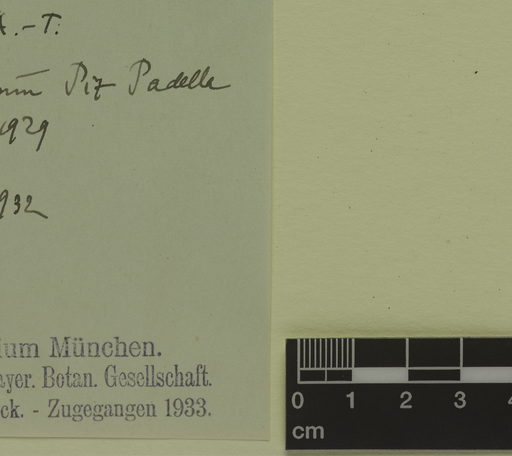 A.-T.
Piz Padella
1929
1932
ium München.
ayer. Botan. Gesellschaft.
ck. - Zugegangen 1933.
0 1 2 3 4
cm